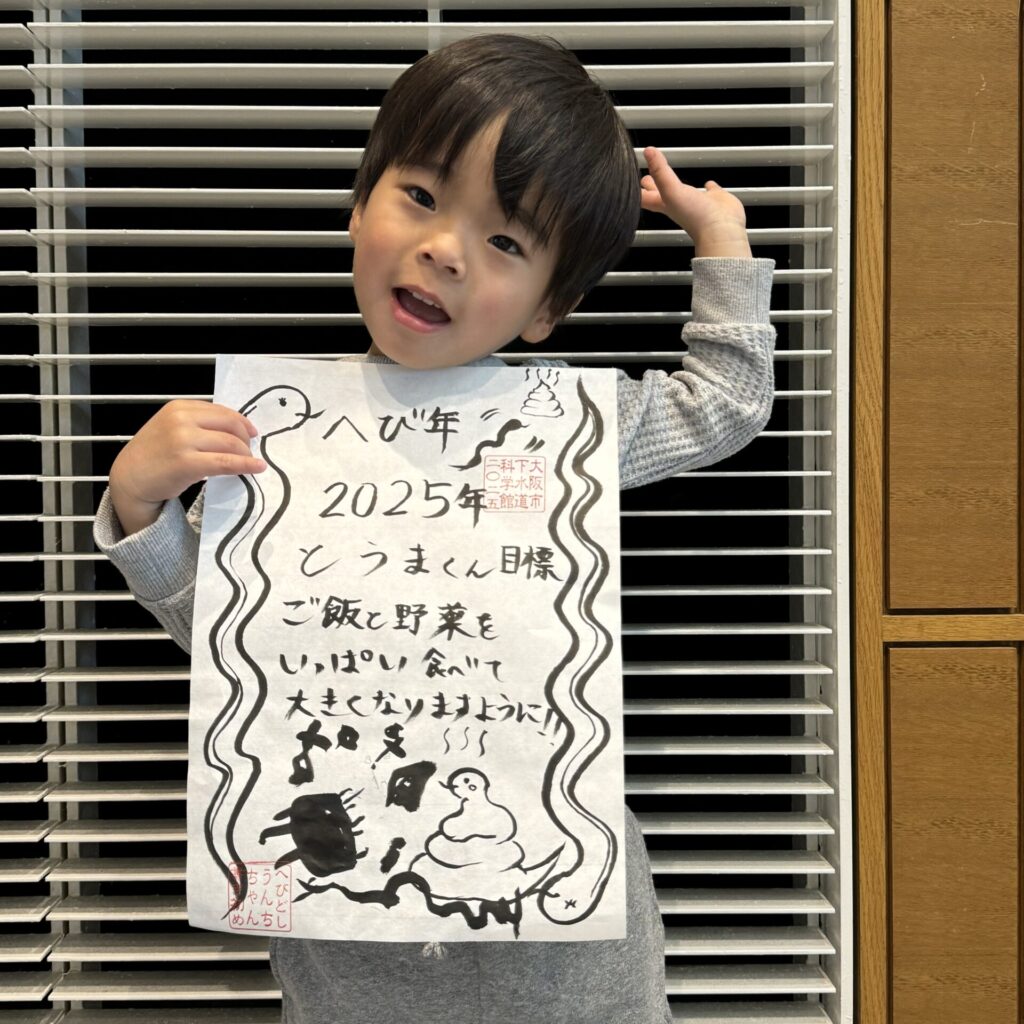 へび年
2025年
大阪市
下水道
科学館
二〇二五
とうまくん目標
ご飯と野菜を
いっぱい食べて
大きくなりますように!!
へびどし
うんち
ちゃん